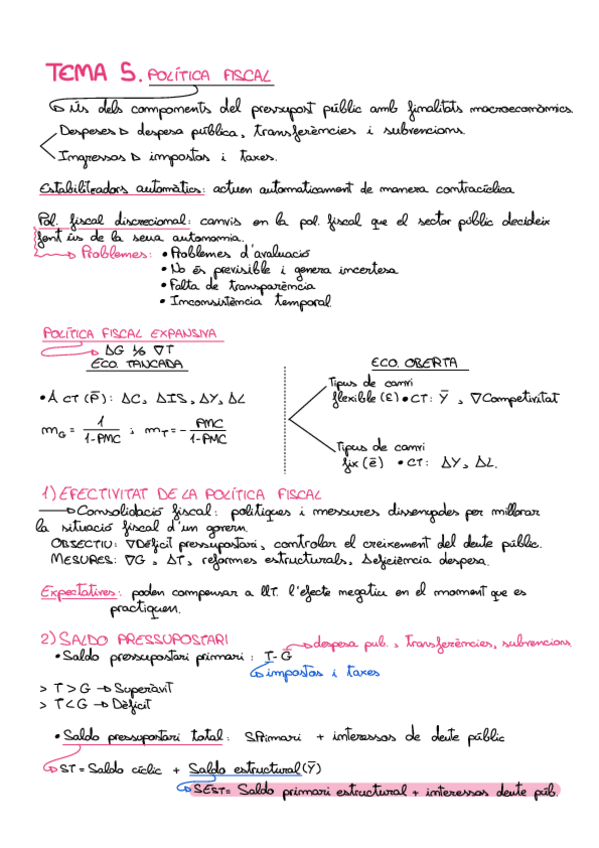 TEMA 5. POLÍTICA FISCAL
Ús dels components del pressupost públic amb finalitats macroeconòmics.
Despeses ▷ despesa pública, transferències i subvencions.
Ingressos ▷ impostos i taxes.
Estabilitzadors automàtics: actuen automaticament de manera contracíclica
Pol. fiscal discrecional: canvis en la pol. fiscal que el sector públic decideix
fent ús de la seua autonomia.
Problemes: • Problemes d'avaluació
• No és previsible i genera incertesa
• Falta de transparència
• Inconsistència temporal.
POLÍTICA FISCAL EXPANSIVA
ΔG i/o ∇T
ECO. TANCADA
• A CT (P̄): ΔC, ΔIS, ΔY, ΔL
mG = 1 / 1-PMC ; mT = - PMC / 1-PMC
ECO. OBERTA
Tipus de canvi
flexible (E) • CT: Ȳ , ∇Competivitat
Tipus de canvi
fix (ē) • CT: ΔY, ΔL.
1) EFECTIVITAT DE LA POLÍTICA FISCAL
Consolidació fiscal: politiques i messures dissenyades per millorar
la situació fiscal d'un govern.
OBJECTIU: ∇Dèficit pressupostari, controlar el creixement del deute públic.
MESURES: ∇G, ΔT, reformes estructurals, Δeficiència despesa.
Expectatives: poden compensar a llT. l'efecte negatiu en el moment que es
practiquen.
2) SALDO PRESSUPOSTARI
despesa pub., Transferències, subvencions
• Saldo pressupostari primari: T-G
impostos i taxes
> T > G → Superàvit
> T < G → Dèficit
• Saldo pressupostari total: SPrimari + interessos de deute públic
ST = Saldo cíclic + Saldo estructural (Ȳ)
SEST = Saldo primari estructural + interessos deute púb.